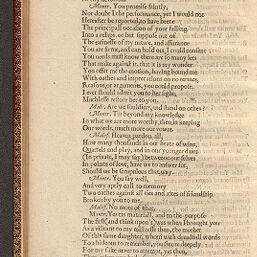 Montr. You promise fairely,
Nor doubt I the performance, yet I would not
Hereafter be reported, to have beene
The principall occasion of your falling
Into a relapse, or but suppose out of
The easinesse of my nature, and assurance
You are firme, and can hold out, I could consent
You needs must know there are so many lets
That make against it, that it is my wonder
You offer me the motion, having bound me
With oathes and imprecations on no termes,
Reasons, or arguments, you could propose,
I ever should admit you to her sight,
Muchlesse restore her to you.
Male. Are we souldiers, and stand on othes?
Montr. Tis beyond my knowledge
In what we are more worthy, then in keeping
Our words, much more our vowes.
Malef. Heaven pardon all,
How many thousands in our heate of wine,
Quarrels and play, and in our younger daies
(In private, I may say) betweene our selves
In points of love, have we to answer for,
Should we be scrupulous this way.
Montr. You say well,
And very aptly call to memory
Two oathes against all ties and rites of friendship
Broken by you to me.
Malef. No more of that.
Montr. Yes tis materiall, and to the purpose
The first (and thinke upon't) was when I brought you
As a visitant to my mistresse then, the mother
Of this same daughter, whom with dreadfull words
Too hideous to remember, you swore deepely
For my sake never to attempt, yet then,